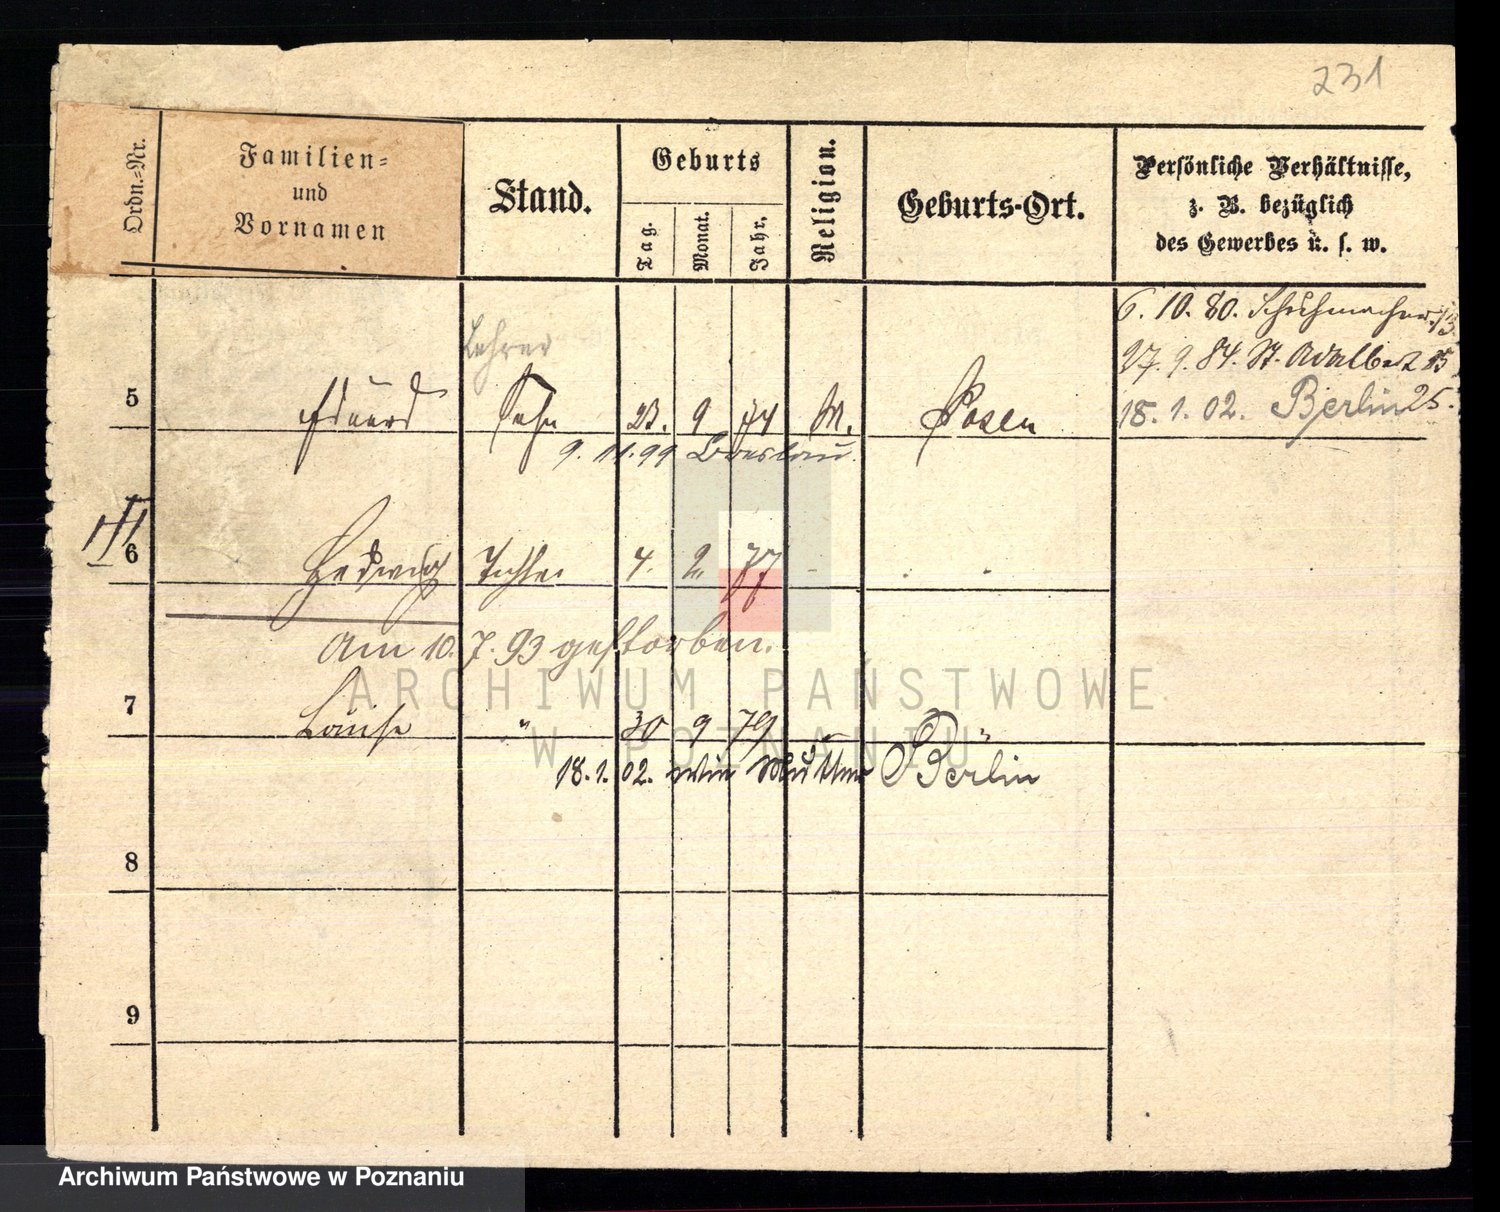 231
Ordn.-Nr.
Familien-
und
Vornamen
Stand.
Geburts
Tag.
Monat.
Jahr.
Religion.
Geburts-Ort.
Persönliche Verhältnisse,
z. B. bezüglich
des Gewerbes u. s. w.
6. 10. 80. Schuhmacherstr 13
27. 9. 84. St. Adalbert 25
18. 1. 02. Berlin 25.
Lehrer
5 Eduard Sohn 23. 9 74 M. Posen
9. 11. 99 Breslau
III
6 Hedwig Tochter 4. 2. 77 - . .
Am 10. 7. 93 gestorben.
7 Louise " 30 9 79 "
18. 1. 02. wie Mutter Berlin
8
9
ARCHIWUM PAŃSTWOWE
W POZNANIU
Archiwum Państwowe w Poznaniu